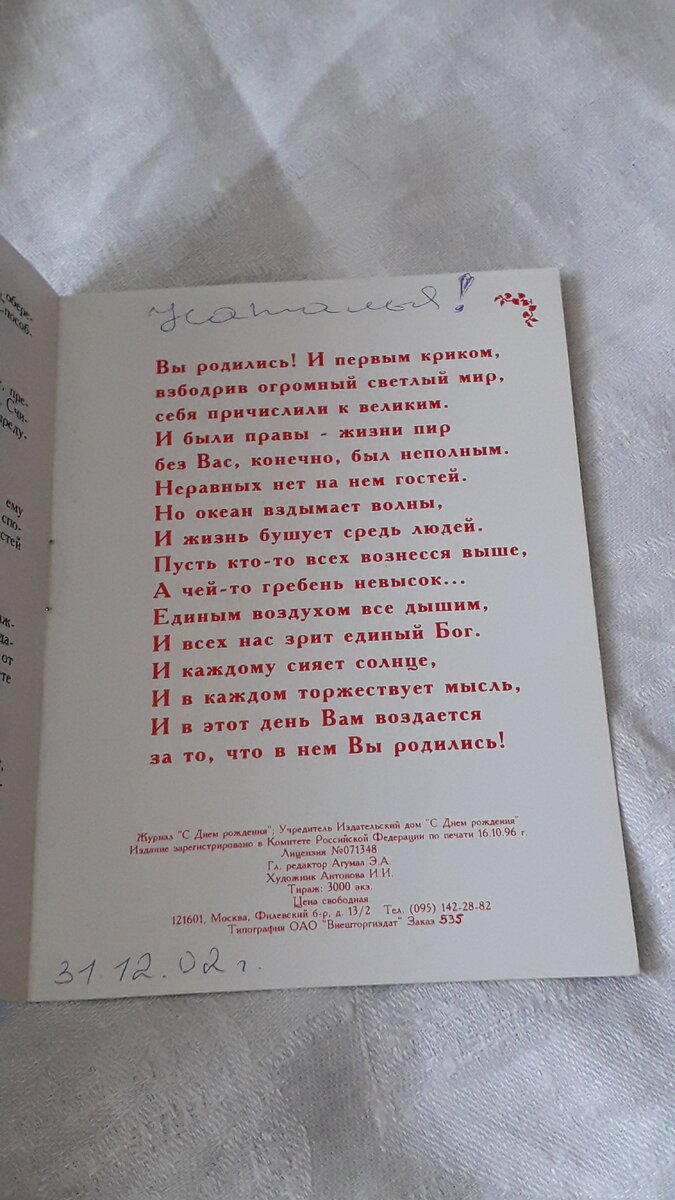 Наталья!
Вы родились! И первым криком,
взбодрив огромный светлый мир,
себя причислили к великим.
И были правы - жизни пир
без Вас, конечно, был неполным.
Неравных нет на нем гостей.
Но океан вздымает волны,
И жизнь бушует средь людей.
Пусть кто-то всех вознесся выше,
А чей-то гребень невысок...
Единым воздухом все дышим,
И всех нас зрит единый Бог.
И каждому сияет солнце,
И в каждом торжествует мысль,
И в этот день Вам воздается
за то, что в нем Вы родились!
Журнал "С Днем рождения"; Учредитель Издательский дом "С Днем рождения"
Издание зарегистрировано в Комитете Российской Федерации по печати 16.10.96 г.
Лицензия №071348
Гл. редактор Агумаа Э.А.
Художник Антонова И.И.
Тираж: 3000 экз.
Цена свободная
121601, Москва, Филевский б-р, д. 13/2 Тел. (095) 142-28-82
Типография ОАО "Внешторгиздат" Заказ 535
31.12.02 г.
ему
спо-
стей
от